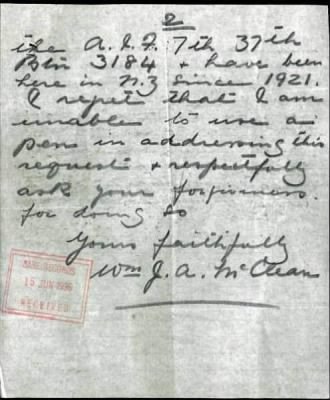 2
the A.I.F. 7th 37th
Btn 3184 + have been
here in N.Z since 1921.
I regret that I am
unable to use a
pen in addressing this
request + respectfully
ask your forgiveness.
for doing so
Yours faithfully
Wm J. A. McClean
BASE RECORDS
15 JUN 1936
RECEIVED